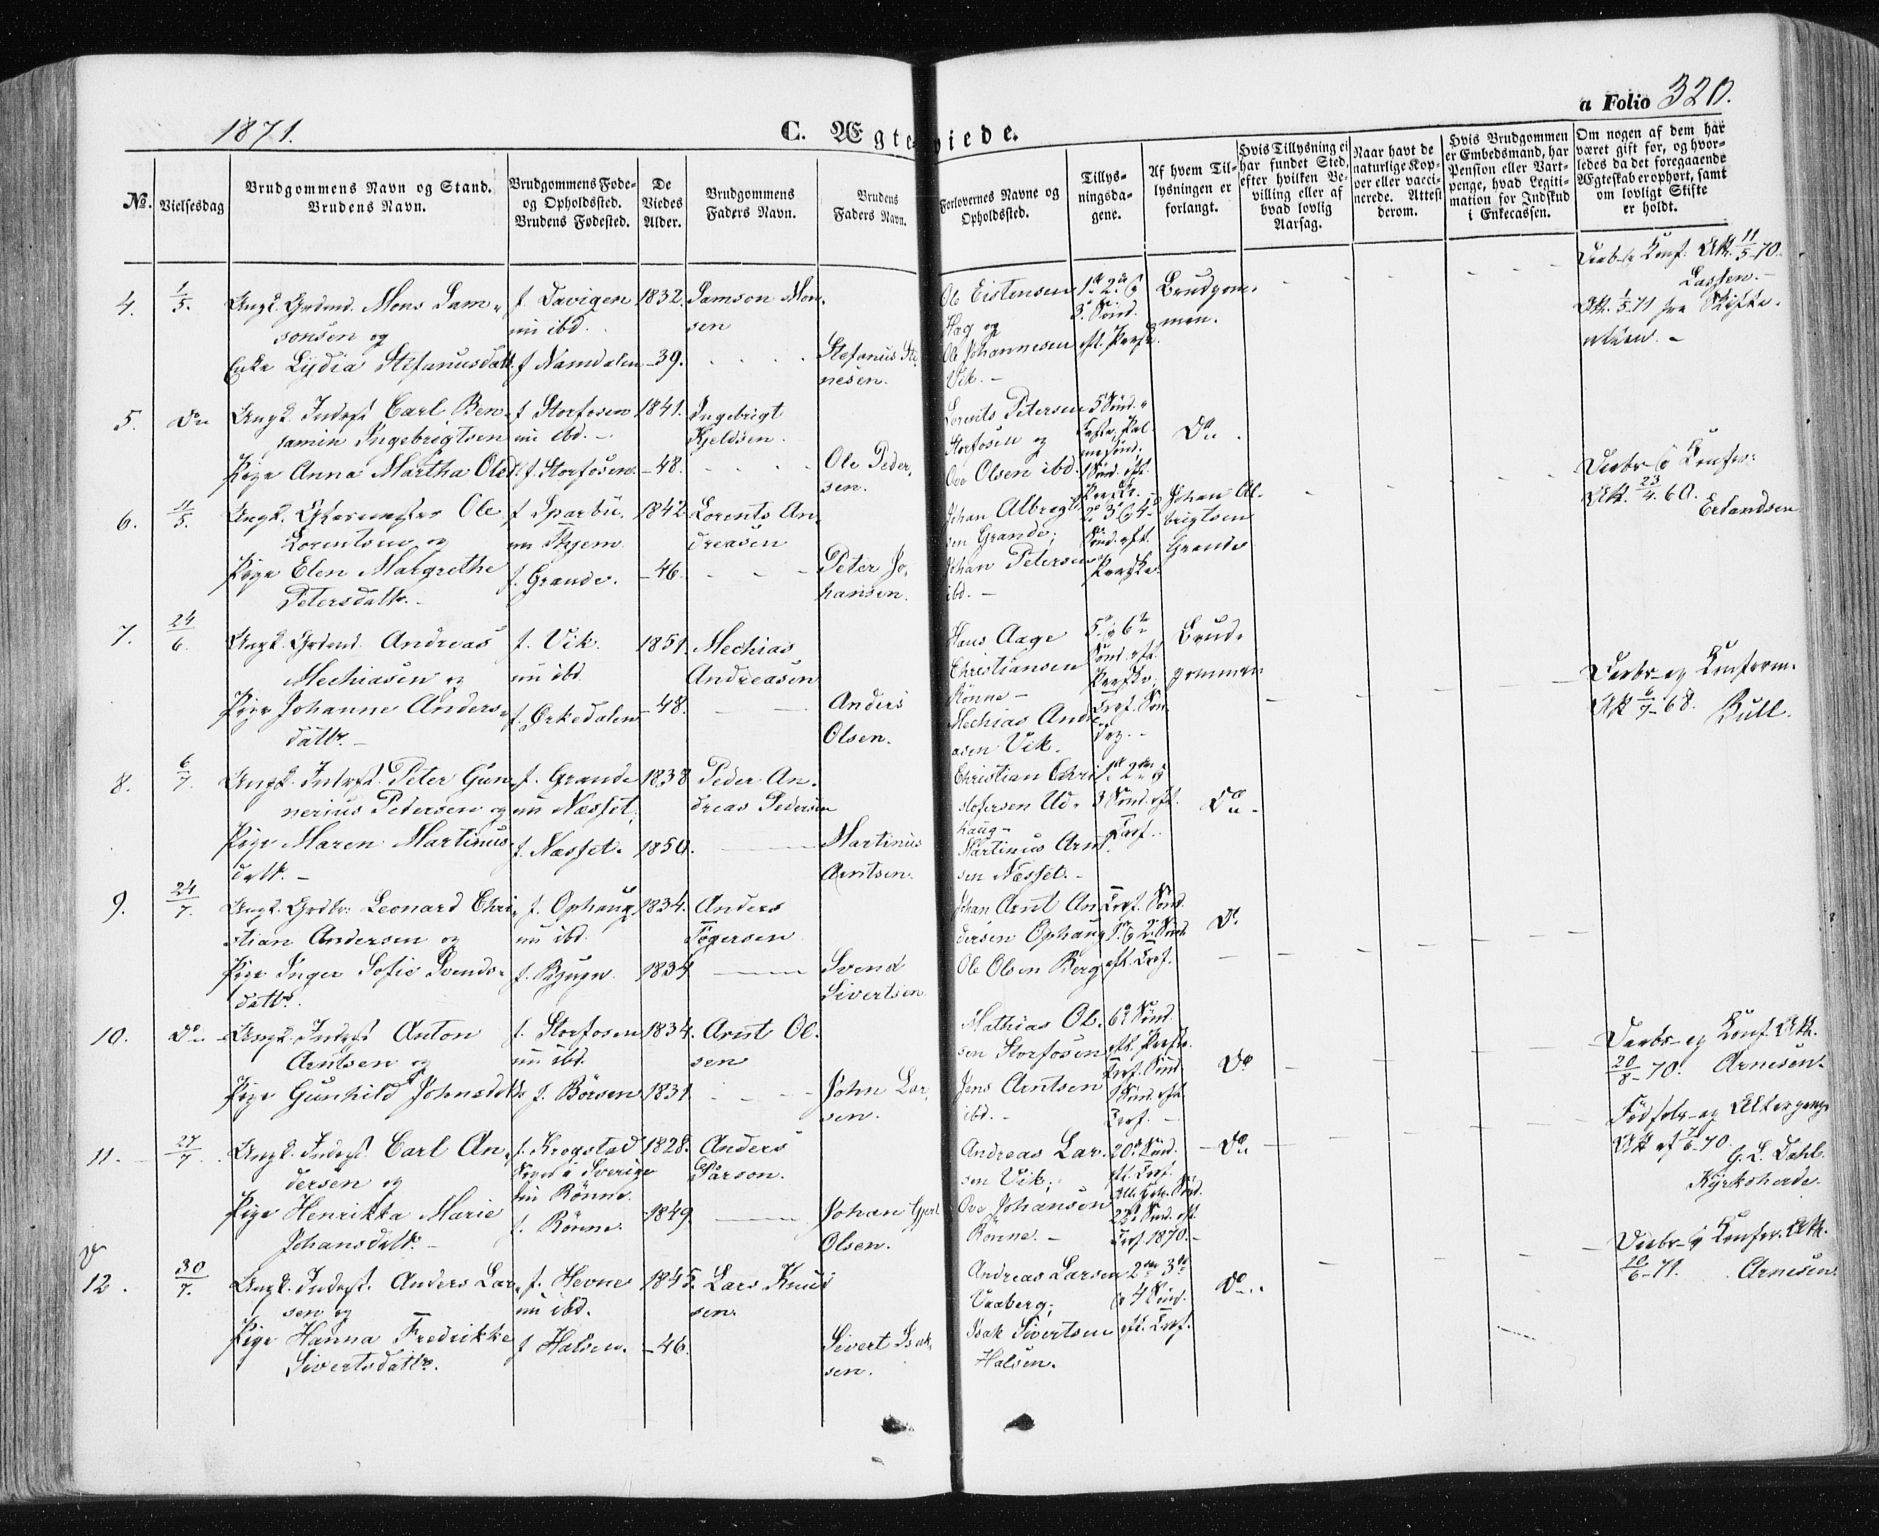 1871.
C. Ægteviede.
a Folio 320.
No.
Vielsesdag
Brudgommens Navn og Stand.
Brudens Navn.
Brudgommens Føde-
og Opholdssted.
Brudens Fødested.
De
Viedes
Alder.
Brudgommens
Faders Navn.
Brudens
Faders Navn.
Forlovernes Navne og
Opholdssted.
Tillys-
ningsda-
gene.
Af hvem Til-
lysningen er
forlangt.
Hvis Tillysning ei
har fundet Sted,
efter hvilken Be-
villing eller af
hvad lovlig
Aarsag.
Naar havt de
naturlige Kop-
per eller vacci-
nerede. Attest
derom.
Hvis Brudgommen
er Embedsmand, har
Pension eller Vart-
penge, hvad Legiti-
mation for Indskud
i Enkecassen.
Om nogen af dem har
været gift før, og hvor-
ledes da det foregaaende
Ægteskab er ophørt, samt
om lovligt Skifte
er holdt.
4. 1/5. Ungk. Grdmd. Mons Sam-
sonsen og
Enke Lydia Stefanusdatt.
f. Davigen
nu ibd.
f Namdalen
1832.
-39.
Samson Mon-
sen
Stefanus Ste-
nesen.
Ole Eistensen
Hag og
Ole Johannesen
Vik. -
1st 2den og
3. Sønd.
eft. Paaske
Brudgom-
men.
Daabs- og Konf. Att. 11/5-70.
Lassen. -
Att. 1/5-71 fra Skifte-
retten. -
5. Do Ungk. Inderst Carl Ben-
jamin Ingebrigtsen
Pige Anna Martha Olsd.
f Storfosen
nu ibd. -
f. Storfosen
1841.
-48.
Ingebrigt
Kjeldsen.
Ole Peder-
sen.
Lorents Petersen
Storfosen og
Ove Olsen ibd.
5 Sønd. i
Faste, Pal-
mesønd.,
1 Sønd. eft.
Paaske.
Do.
Daabs- og Konfir-
Att. 23/4 60. Erlandsen
6. 11/5. Ungk. Ole
Lorentsen og
Pige Elen Malgrethe
Petersdatt. -
f Sparbu.
nu Skjem.
f. Grande.
1842
-46.
Lorents An-
dreasen
Peter Jo-
hansen.
Johan Albregt-
sen Grande;
Johan Petersen
ibd. -
2den 3 og 4de
Sønd. eft.
Paaske.
Johan Al-
brigtsen
Grande
7. 24/6. Ungk. Grdmd. Andreas
Mechiasen og
Pige Johanne Anders-
datt. -
f. Vik.
nu ibd
f. Ørkedalen
1851.
-48.
Mechias
Andreasen
Anders
Olsen.
Hans Aage
Christiansen
Rønne -
Mechias Andre-
asen Vik.
5te og 6te
Sønd. eft.
Paaske,
Tref. Søn-
dag. -
Brud-
gommen
Daabs- og Konfirm.
Att 6/7-68. Bull.
8. 6/7. Ungk. Inderst. Peter Gun-
nerius Petersen og
Pige Maren Martinus-
datt. -
f. Grande
nu Næsset,
f. Næsset.
1838
1850.
Peder An-
dreas Pedersen
Martinus
Arntsen.
Christian Chri-
stofersen Ud-
haug -
Martinus Arnt-
sen Næsset. -
1ste 2den og
3 Sønd. eft.
Tref..
Do.
9. 24/7. Ungk. Grdbr. Leonard Chri-
stian Andersen og
Pige Inger Sofie Svends-
datt.
f. Ophaug
nu ibd.
f. Bjugn.
1834.
1834
Anders
Togersen
Svend
Sivertsen
Johan Arnt An-
dersen Ophaug
Ole Olsen Berg
Tref. Sønd.
1ste og 2den Sønd.
eft. Tref.
Do
10. Do Ungk. Inderst Anton
Arntsen og
Pige Gunhild Johnsdatt.
f. Storfosen
nu ibd.
f. Børsen
1834.
1831
Arnt Ol-
sen
John Lar-
sen.
Mathias Ol-
sen Storfosen
Jens Arntsen
ibd. -
6te Sønd.
eft. Paaske.
Tref. Sønd.
1 Sønd. eft.
Tref. -
Do
Daabs- og Konf. Att.
20/8-70. Arnesen.
11. 27/7. Ungk. Inderst. Carl An-
dersen og
Pige Henrikka Marie
Johansdatt. -
f. Krogstad
Sogn i Sverige
nu Rønne.
f. Rønne.
1828.
1849.
Anders
Parson.
Johan Gjert
Olsen.
Andreas Lar-
sen Vik,
Ove Johansen
Rønne. -
20de Sønd.
eft. Tref.
Alle Helg. Sønd.
22de Sønd. eft.
Tref 1870. -
Do
Fødsels- og Altergangs
Att af 7/6-70. G. L. Dahl.
Kyrkoherde.
12. 30/7. Ungk. Inderst. Anders Lar-
sen og
Pige Hanna Fredrikke
Sivertsdatt.
f. Hevne
nu ibd.
f Halsen.
1845.
-46.
Lars Knud-
sen.
Sivert Isak-
sen.
Andreas Larsen
Vaaberg;
Isak Sivertsen
Halsen.
2den 3de
og 4 Sønd.
eft. Tref.
Do.
Daabs- og Konfir. Att.
10/6-71. Arnesen.